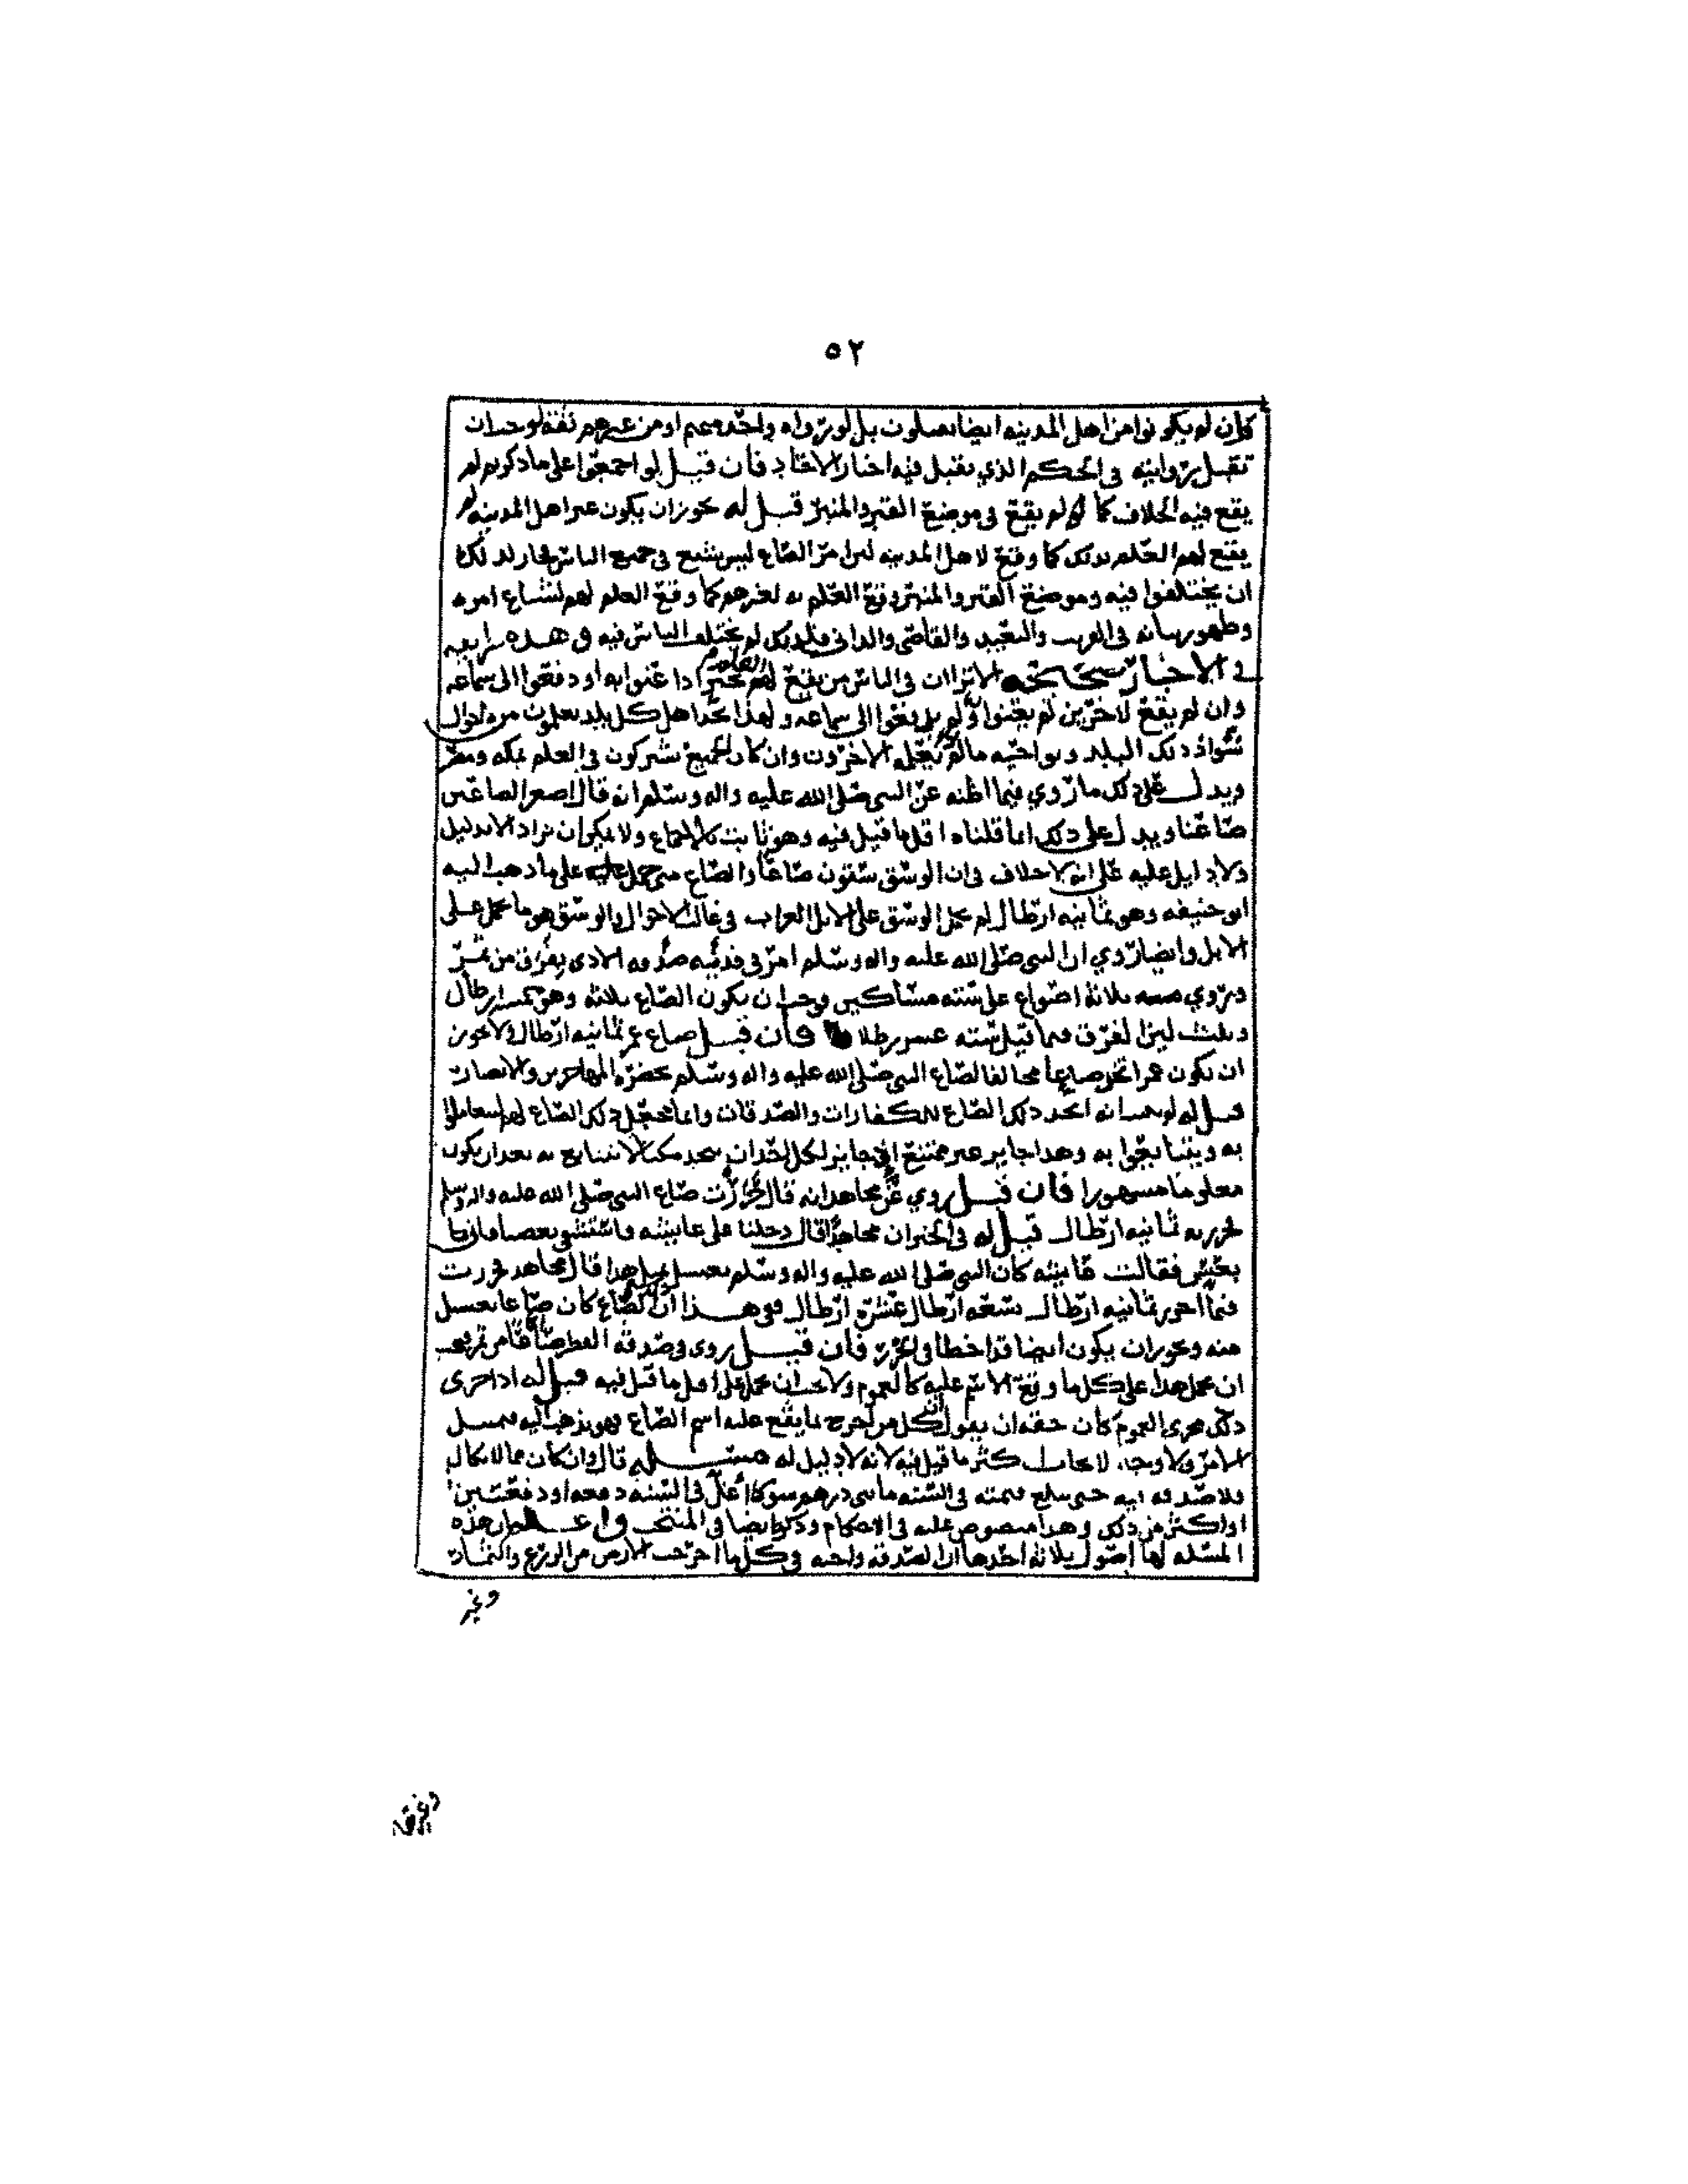 ٥٢
كان لم يكونوا من اهل المدينه ايضا يصلون بل لو رواه واحد منهم او من غيرهم ثقة لوجب ان
تقبل روايته في الحكم الذي يقبل فيه اخبار الاحاد فان قيل لو اجمعوا على ما ذكرتم لم
يقع فيه الخلاف كما لم يقع في موضع القبر والمنبر قيل له يجوز ان يكون غير اهل المدينه لم
يقع لهم العلم بذلك كما وقع لاهل المدينه لان امر الصاع ليس يشيع في جميع الناس فجاز لذلك
ان يختلفوا فيه وموضع القبر والمنبر وقع العلم به لغيرهم كما وقع العلم لهم لشياع امره
وظهور بيانه في القريب والبعيد والقاصي والداني فلذلك لم يختلف الناس فيه وهذه طريقه
في الاخبار صحيحه الا ترا ان في الناس من يقع لهم العلم بمخبر اذا عنوا به او دفعوا الى سماعه
وان لم يقع لاخرين لم يعتنوا به ولم يدفعوا الى سماعه ولهذا نجد اهل كل بلد يعلمون من احوال
سواد ذلك البلد ونواحيه ما لم يعلمه الاخرون وان كان الجميع يشتركون في العلم بمكه ومصر
ويدل على ذلك ما روي فيما اظنه عن النبي صلى الله عليه واله وسلم انه قال اصغر الصاعين
صاعنا ويدل على ذلك ان ما قلناه اقل ما قيل فيه وهو ثابت بالاجماع ولا يمكن ان يزاد الا بدليل
ولا دليل عليه على انه لا خلاف في ان الوسق ستون صاعا والصاع متى حمل على ما ذهب اليه
ابو حنيفه وهو ثمانيه ارطال لم يحمل الوسق على الابل العراب في غالب الاحوال والوسق هو ما يحمل على
الابل وايضا روي ان النبي صلى الله عليه واله وسلم امر في فديه صدقه الاذى بفرق من تمر
وروي بثلاثة اصواع على سته مساكين فوجب ان يكون الصاع ثلثه وهو خمسه ارطال
وثلث لان الفرق فيما قيل سته عشر رطلا فان قيل صاع عمر ثمانيه ارطال ولا يجوز
ان يكون عمر اتخذ صاعا مخالفا لصاع النبي صلى الله عليه واله وسلم بحضرة المهاجرين والانصار
قيل له لم يثبت انه اتخذ ذلك الصاع للكفارات والصدقات وانما جعل ذلك الصاع لهم ليتعاملوا
به ويتبايعوا به وهذا جايز غير ممتنع اذ جايز لكل احد ان يتخذ مكيالا يتبايع به بعد ان يكون
معلوما مشهورا فان قيل روي عن مجاهد انه قال حزرت صاع النبي صلى الله عليه واله وسلم
فحزرته ثمانيه ارطال قيل له في الخبر ان مجاهدا قال دخلنا على عايشه فاستسقى بعضنا فاتي
بعس فقالت عايشه كان النبي صلى الله عليه واله وسلم يغتسل بمثل هذا قال مجاهد فحزرت
فيما احزر ثمانيه ارطال تسعه ارطال عشره ارطال فهذا ان الصاع كان صاعا يغتسل
منه ويجوز ان يكون ايضا قد اخطا في الحزر فان قيل روى في صدقة الفطر صاعا من تمر يجب
ان يحمل هذا على كل ما وقع الاسم عليه كالعموم ولا يجب ان يحمل على اقل ما قيل فيه قيل له اذا جرى
ذلك مجرى العموم كان حقه ان يقول كل من اخرج ما يقع عليه اسم الصاع فهو
الامر ولا وجه لايجاب اكثر ما قيل فيه لانه لا دليل له مسئله قال وان كان مما لا يكال
فلا صدقه فيه حتى يبلغ قيمته في السنه مائتي درهم سوى اغل في السنه دفعه او دفعتين
او اكثر من ذلك وهذا منصوص عليه في الاحكام وذكر ايضا في المنتخب واعلم ان هذه
المسئله لها اصول ثلاثة احدها ان الصدقه واجبه في كل ما اخرجت الارض من الزرع والثمار
وغير